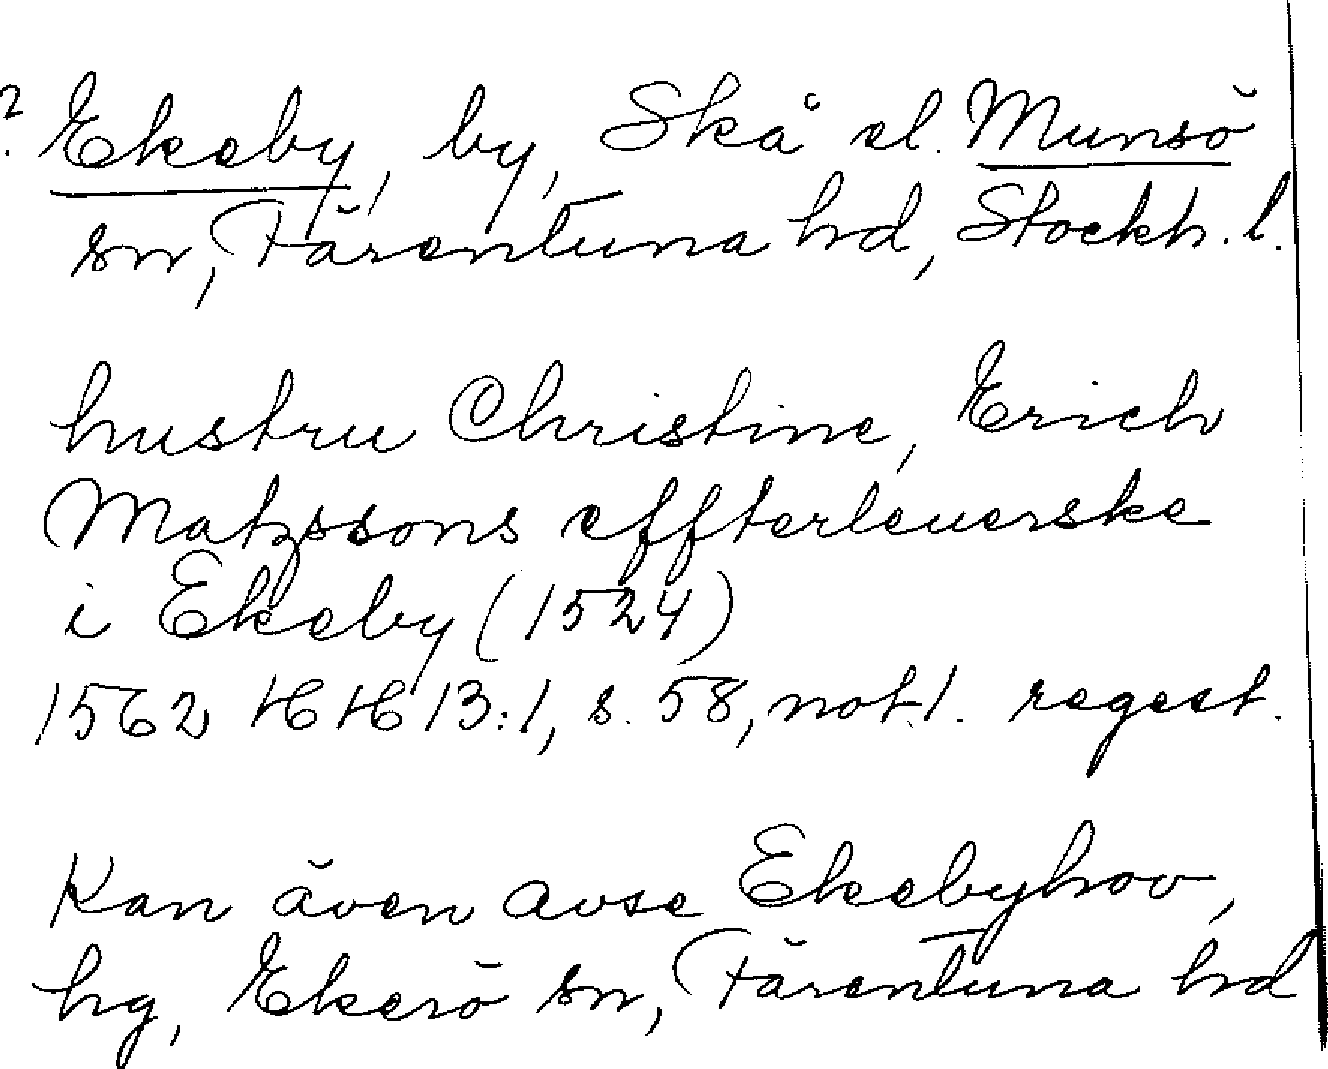 ? Ekeby, by, Skå el. Munsö
sn, Färentuna hd, Stockh. l.
hustru Christine, Erich
Matzssons effterleuerske
i Ekeby (1524)
1562 HH 13:1, s. 58, not 1. regest.
Kan även avse Ekebyhov,
hg, Ekerö sn, Färentuna hd